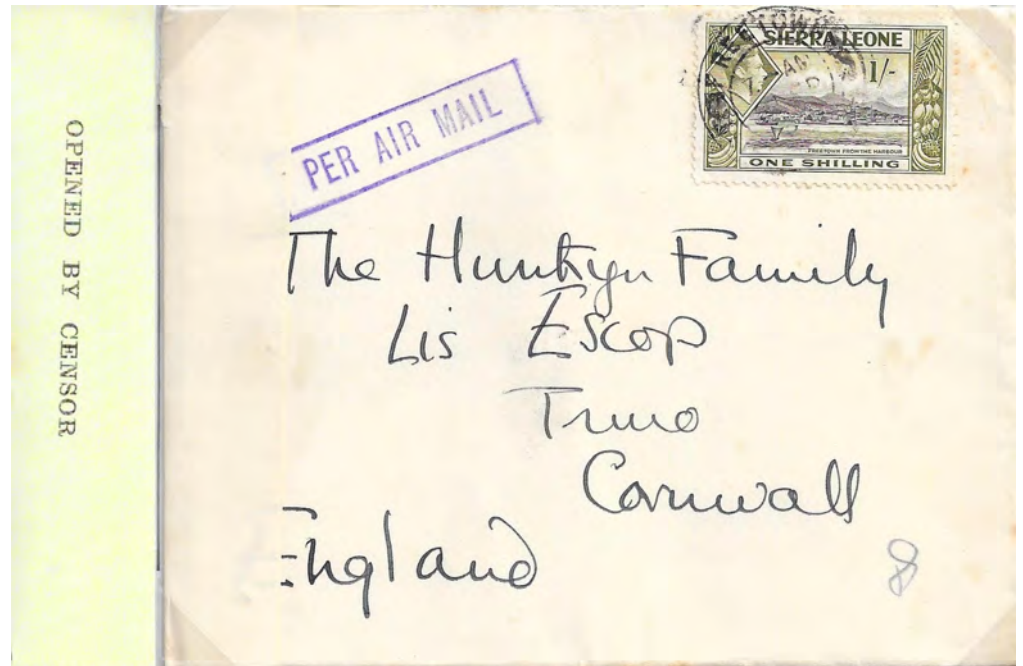 OPENED BY CENSOR
PER AIR MAIL
SIERRA LEONE
1/-
FREETOWN FROM THE HARBOUR
ONE SHILLING
The Hunkyn Family
Lis Escop
Truro
Cornwall
England
8